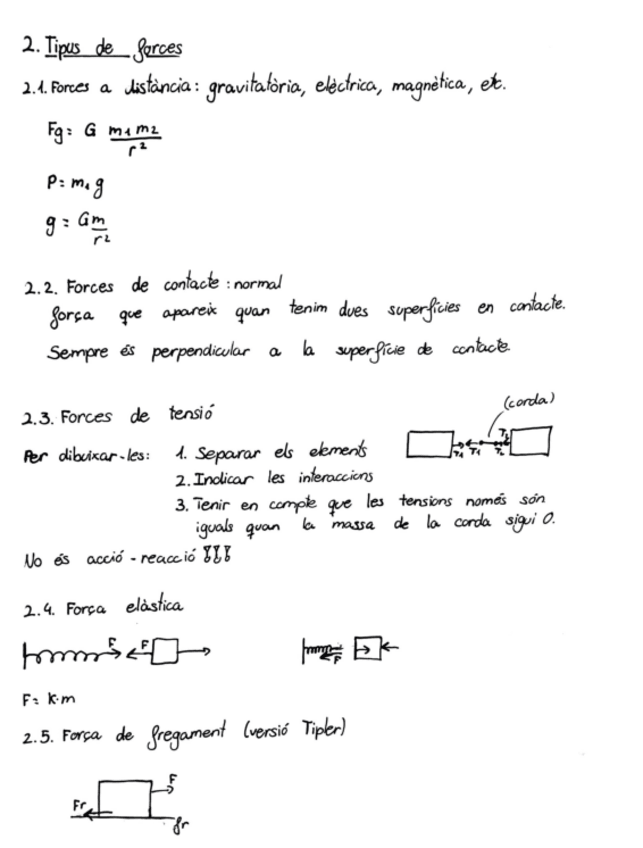 2. Tipus de forces
2.1. Forces a distància: gravitatòria, elèctrica, magnètica, etc.
Fg = G m1 m2 / r²
P = m1 g
g = G m / r²
2.2. Forces de contacte: normal
força que apareix quan tenim dues superfícies en contacte.
Sempre és perpendicular a la superfície de contacte.
2.3. Forces de tensió
(corda)
T1 T1 T2 T2
Per dibuixar-les: 1. Separar els elements
2. Indicar les interaccions
3. Tenir en compte que les tensions només són
iguals quan la massa de la corda sigui 0.
No és acció-reacció !!!
2.4. Força elàstica
F F F
F = K·m
2.5. Força de fregament (versió Tipler)
F
Fr
fr